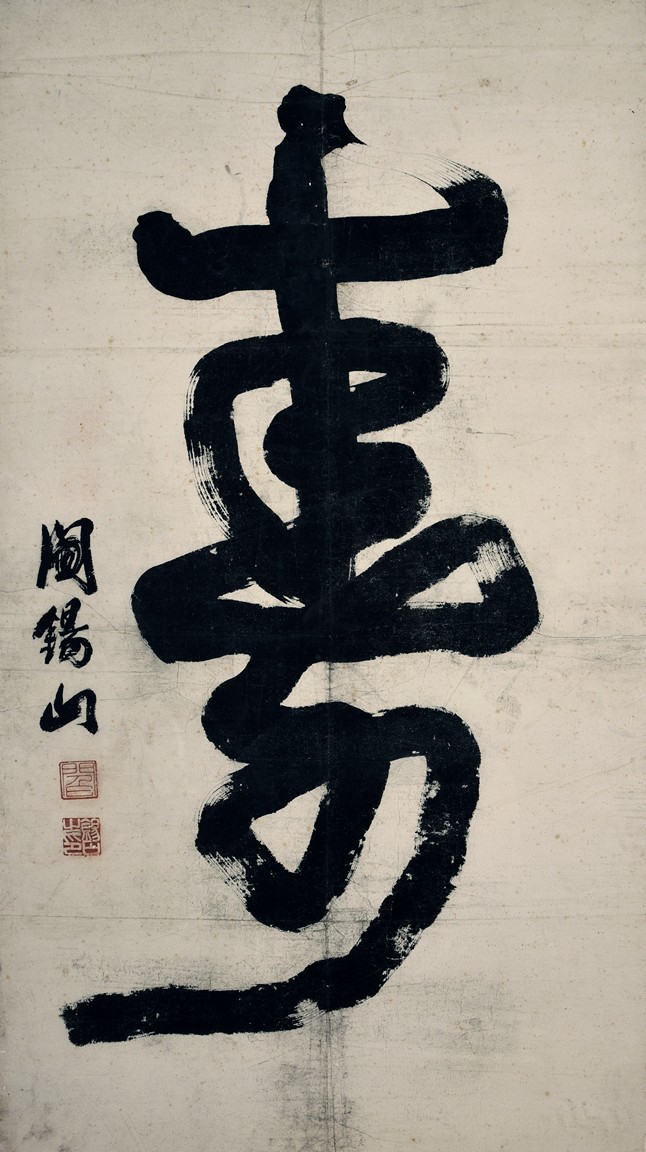 壽
閻錫山